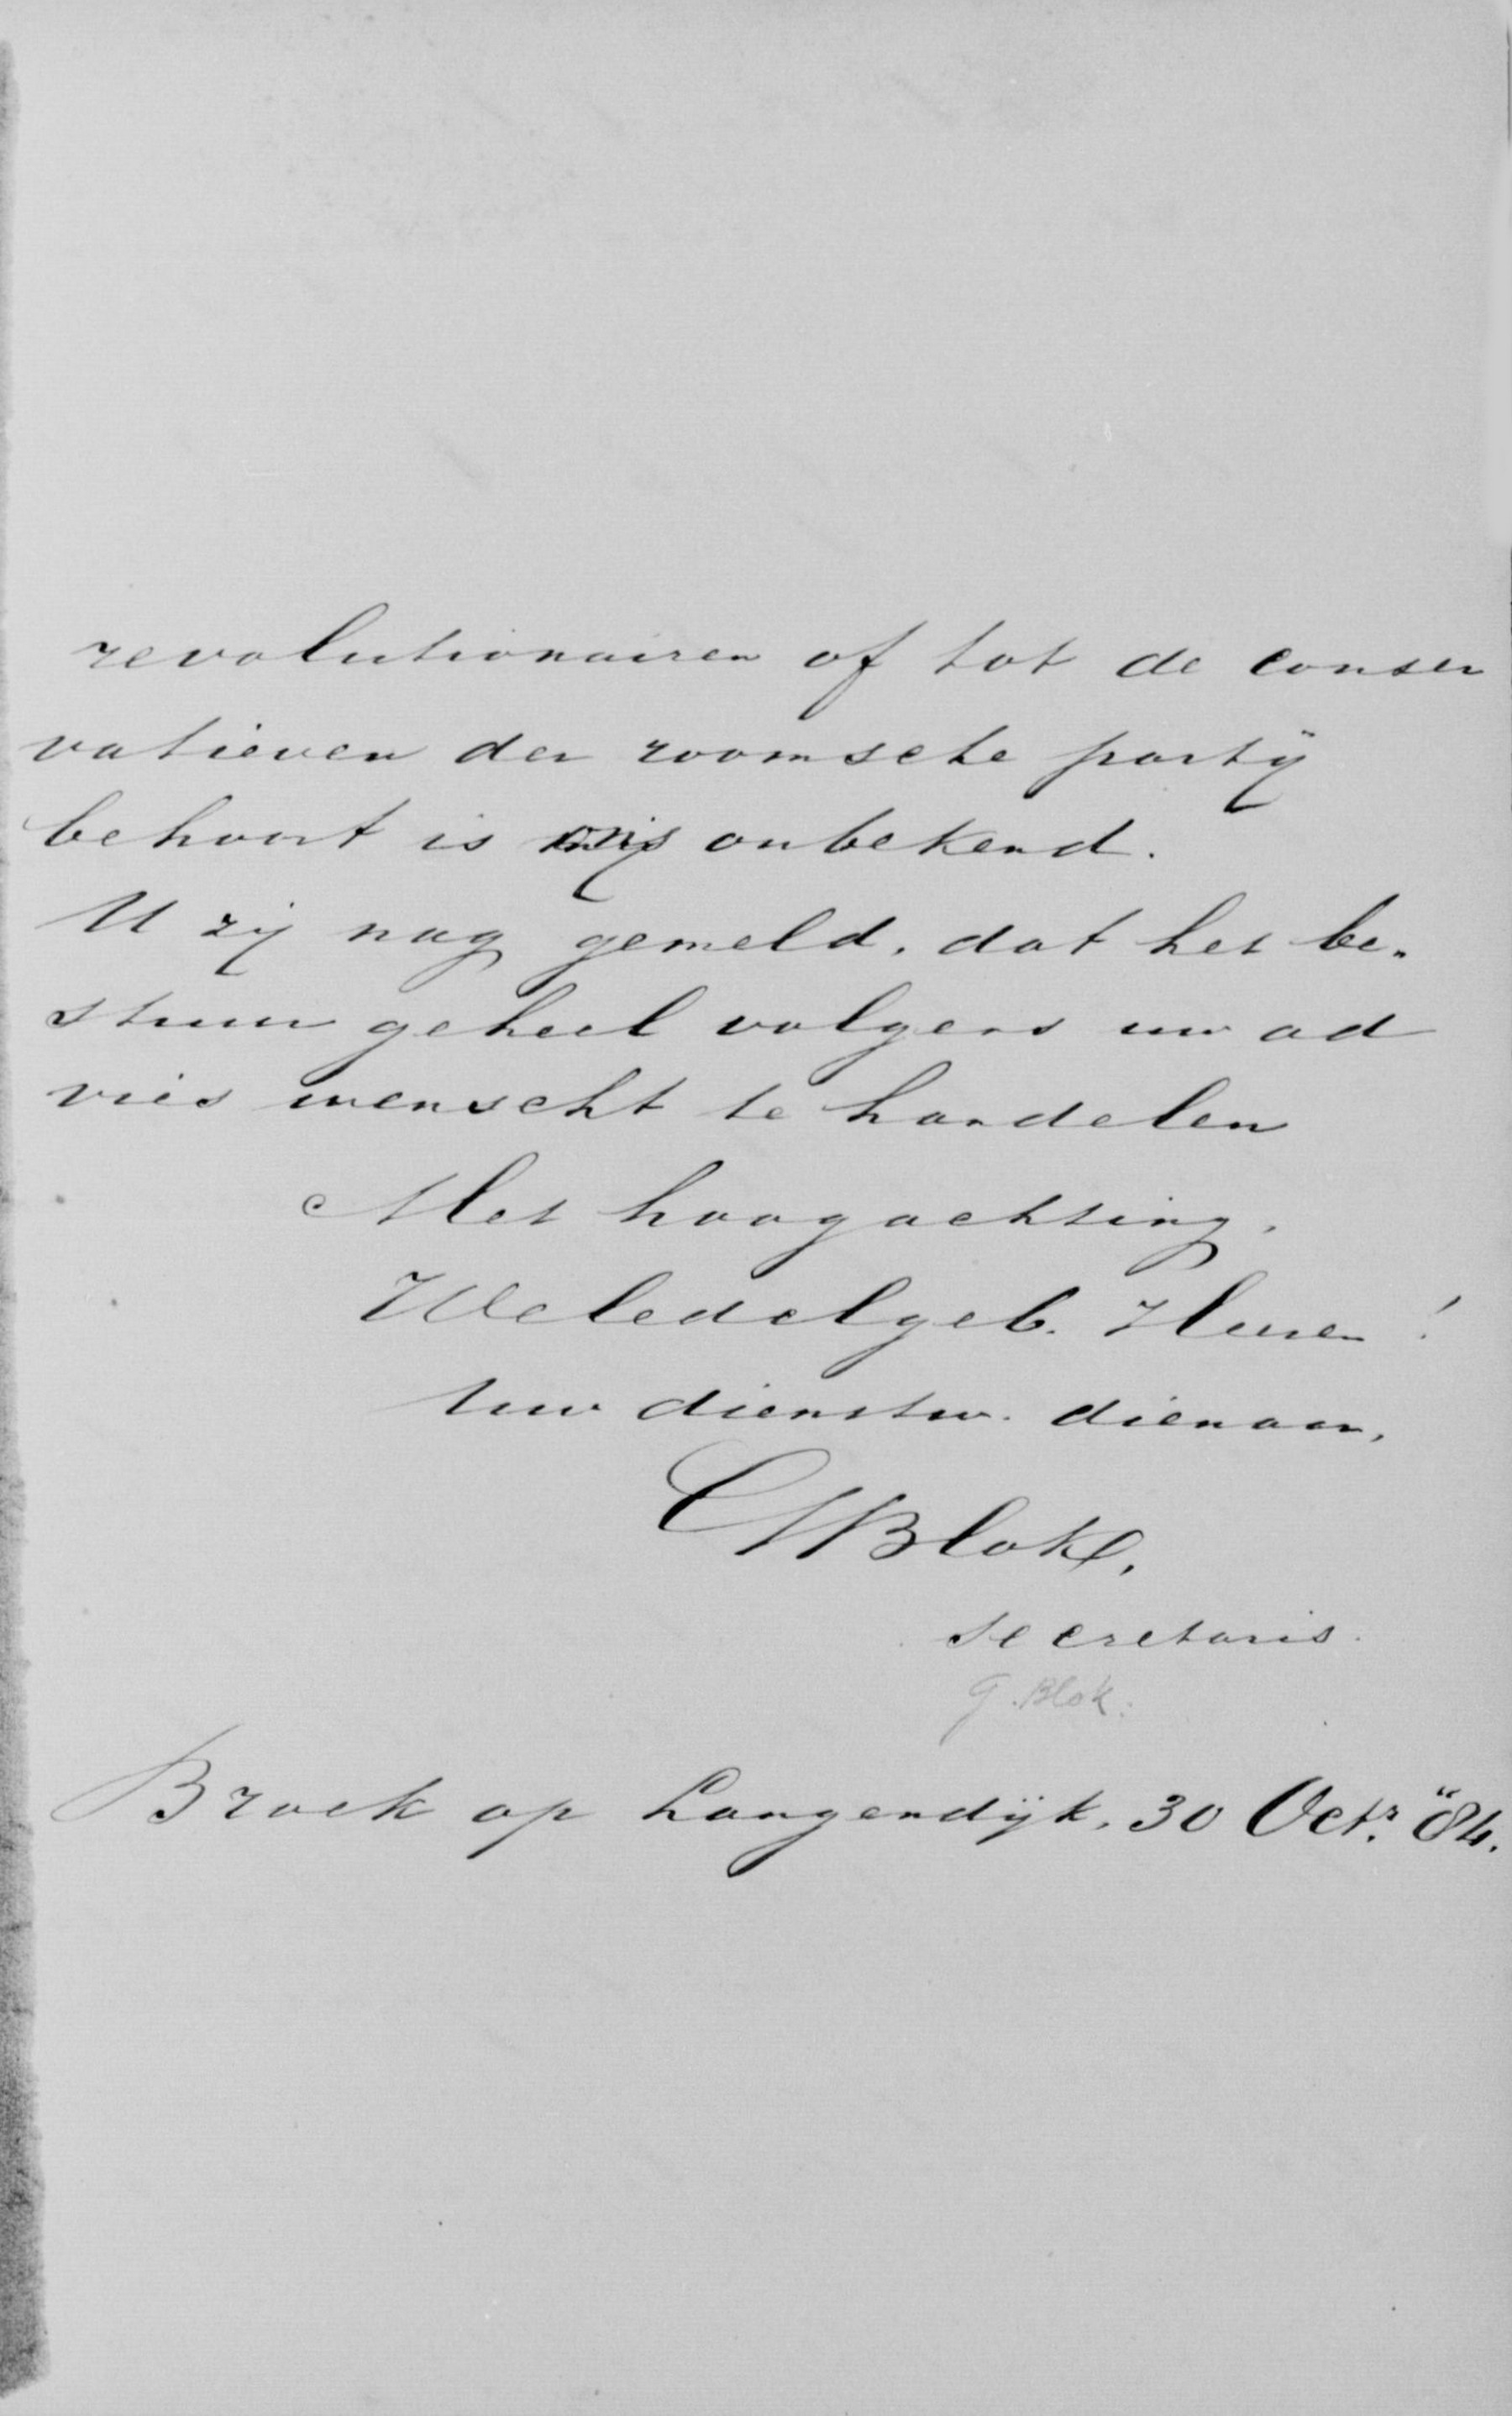 revolutionairen of tot de conser
vatieven der roomsche partÿ
behoort is ons onbekend.
U zij nog gemeld, dat het be„
stuur geheel volgens uw ad
vies wenscht te handelen
Met hoogachting,
Weledelgeb. Heeren!
Uw dienstw. dienaar,
GBlok,
secretaris.
G. Blok.
Broek op Langendÿk, 30 Octr. "84.